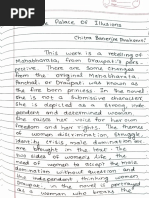 The Palace Of Illusions
Chitra Banerjee Divakaruni
This work is a retelling of
Mahabharata, from Draupati's pers-
pective. There are some changes
from the original Mahabharata
Panchali, or Draupati, was known as
the fire born princess. In the novel
she is not a submissive character.
She is depicted as a strong, inde-
pendent and modern women.
She raises her voice for her own
freedom and her rights. The themes
of women discrimination, struggle,
identity crisis, male domination are
brought in the text. The
two sides of women's life, the
of women to accept the male
domination without question and
Draupati,
in the novel is portrayed
woman who